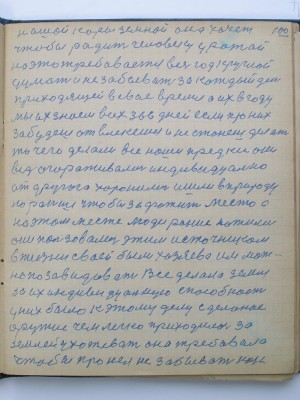 нашой кормизенной она хочет 100
чтобы радит человеку урожай
на это требавается вег год кругной
думат и не забыват за каждый ден
приходящей в свае время а их в году
мы их знаем всех 365 дней если про них
забудем отвлекемся и не станем делат
то чего делали все наши предки они
вег огораживалис индивидуално
от другого хоронилис и шли в природу
но ранше чтобы задержит место а
на этом месте люди ранше жили
они ползовалис этим источником
в жизни своей были хозяева им мож-
но позавидоват все делала земля
за их индивидуалную способност
у них было к этому делу сделоное
оружие чем легко приходилос за
землей ухоживат она требавала
чтобы про нея не забывали как